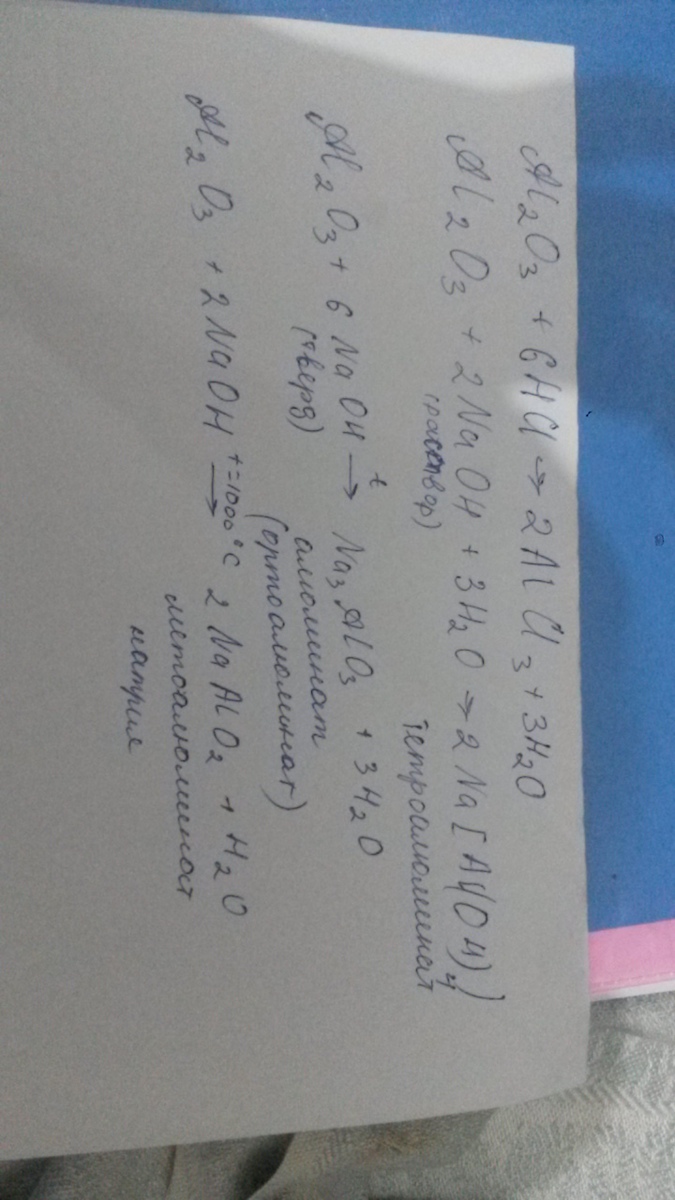 Al₂O₃ + 6HCl → 2AlCl₃ + 3H₂O
Al₂O₃ + 2NaOH + 3H₂O → 2Na[Al(OH)₄]
(раствор) тетроалюминат
Al₂O₃ + 6NaOH →ᵗ Na₃AlO₃ + 3H₂O
(тверд) алюминат
(ортоалюминат)
Al₂O₃ + 2NaOH → t=1000°C 2NaAlO₂ + H₂O
метоалюминат
натрия